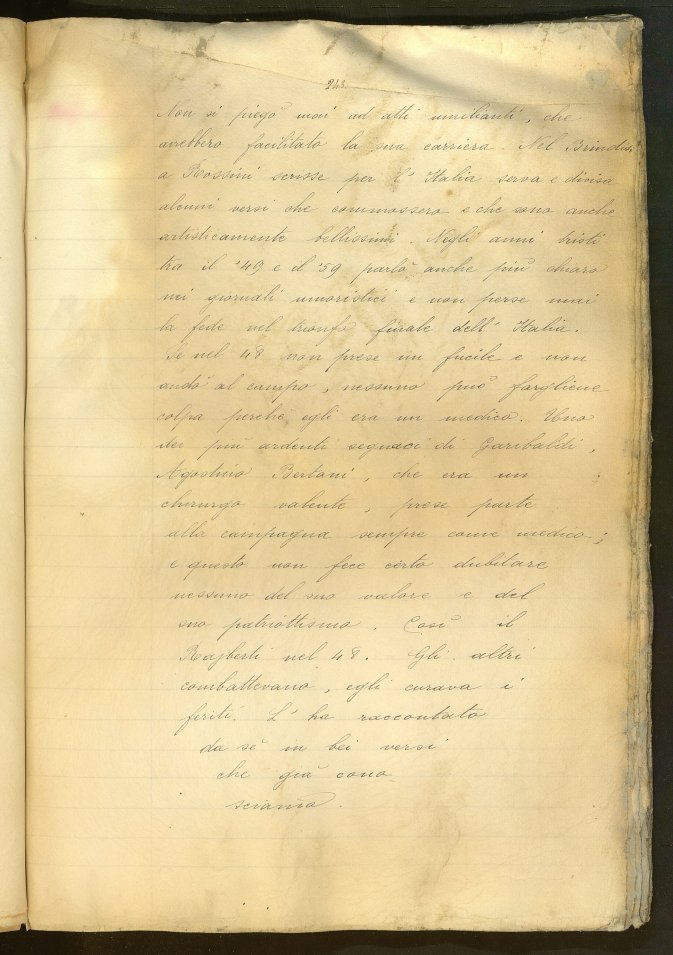 243.
Non si piegò mai ad atti umilianti, che
avrebbero facilitato la sua carriera. Nel Brindisi
a Rossini scrisse per l'Italia serva e divisa
alcuni versi che commossero e che sono anche
artisticamente bellissimi. Negli anni tristi
tra il '49 e il '59 parlò anche più chiaro
nei giornali umoristici e non perse mai
la fede nel trionfo finale dell'Italia.
Se nel 48 non prese un fucile e non
andò al campo, nessuno può fargliene
colpa perchè egli era un medico. Uno
dei più ardenti seguaci di Garibaldi,
Agostino Bertani, che era un
chirurgo valente, prese parte
alla campagna sempre come medico;
e questo non fece certo dubitare
nessuno del suo valore e del
suo patriottismo. Così il
Rajberti nel 48. Gli altri
combattevano, egli curava i
feriti. L'ha raccontato
da sè in bei versi
che già cono
sciamo.